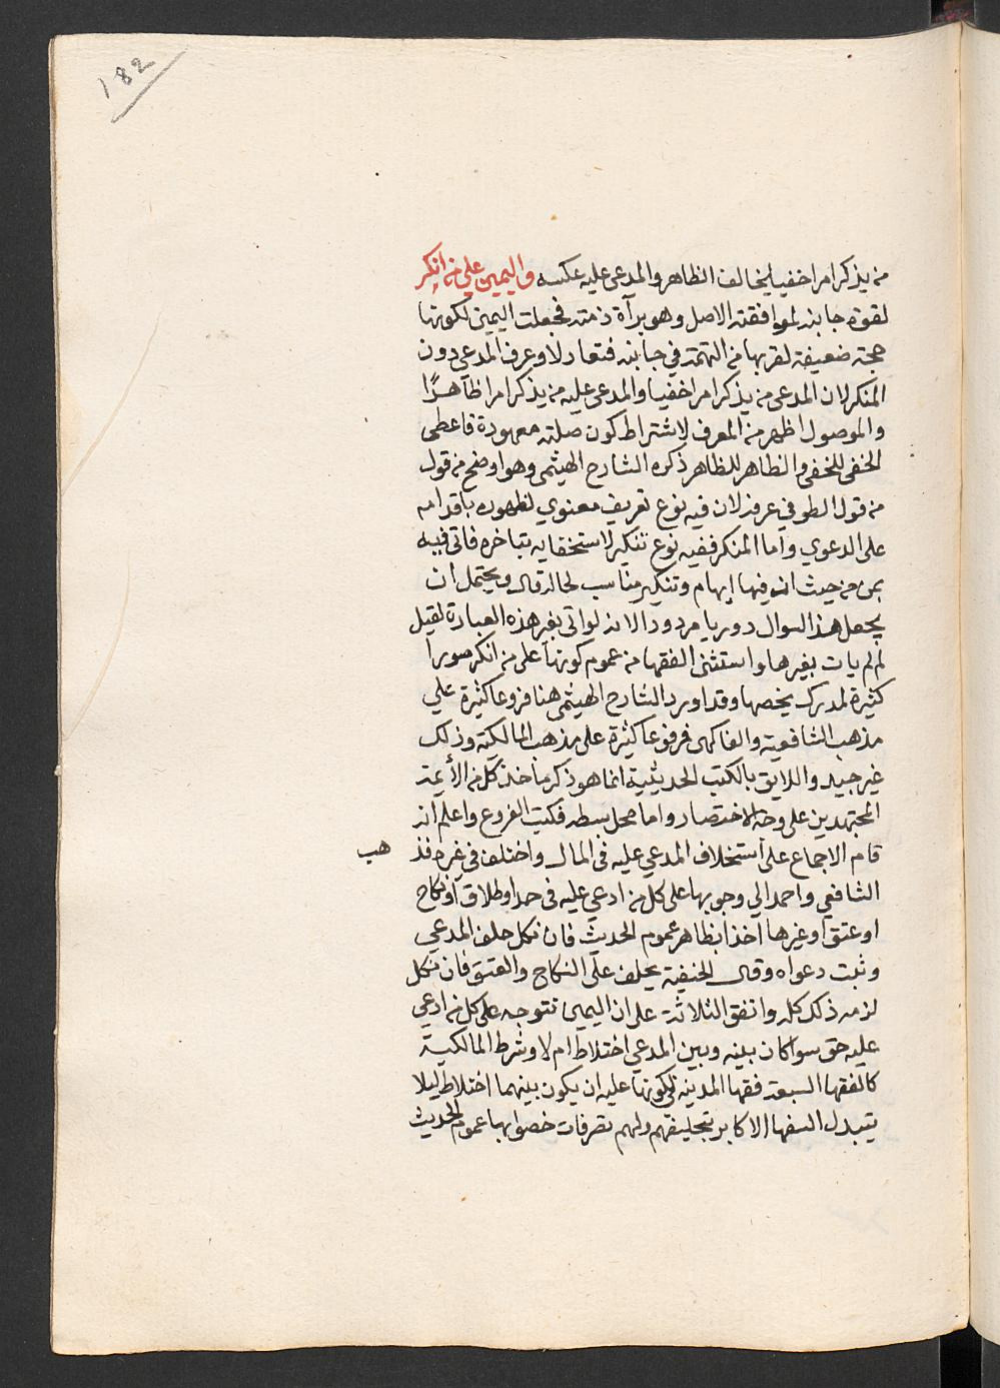 182
من يذكر امرا خفيا يخالف الظاهر والمدعى عليه عكسه واليمين على من انكر
لقوة جانبه لموافقته الاصل وهو برآة ذمته فجعلت اليمين لكونها
حجة ضعيفة لقربها من التهمة في جانبه فتعادلا وعرف المدعي دون
المنكر لان المدعى من يذكر امرا خفيا والمدعى عليه من يذكر امرا ظاهرًا
والموصول اظهر من المعرف لاشتراط كون صلته معهودة فاعطى
الخفى للخفى والظاهر للظاهر ذكره الشارح الهيثمى وهو اوضح من قول
من قول الطوفي عرفه لان فيه نوع تعريف معنوي لظهوره باقدامه
على الدعوي وأما المنكر ففيه نوع تنكير لاستخفايه بتاخره فاتى فيه
بمن من حيث ان فيها إبهام وتنكير مناسب لحاله قال ويحتمل ان
يجعل هذا السوال دوريا مردودا لانه لو اتى بغير هذه العبارة لقيل
لم لم يات بغيرها واستثنى الفقها من عموم كونها على من انكر صورا
كثيرة لمدرك يخصها وقد اورد الشارح الهيثمى هنا فروعا كثيرة علي
مذهب الشافعية والفاكهى فروعا كثيرة على مذهب المالكية وذلك
غير جيد واللايق بالكتب الحديثية انما هو ذكر ماخذ كل من الأيمة
المجتهدين على وجه الاختصار واما محل بسطه فكتب الفروع واعلم انه
قام الاجماع على استحلاف المدعي عليه فى المال واختلف في غيره فذ هب
الشافعي واحمد الي وجوبها على كل من ادعي عليه فى حد او طلاق أو نكاح
او عتق او غيرها اخذا بظاهر عموم الحديث فان نكل حلف المدعي
وثبت دعواه وقال الحنفية يحلف على النكاح والعتق فان نكل
لزمه ذلك كله واتفق الثلاثة على ان اليمين تتوجه على كل من ادعي
عليه حق سوا كان بينه وبين المدعي اختلاط ام لا وشرط المالكية
كالفقها السبعة فقها المدينة لكونها عليه ان يكون بينهما اختلاط ليلا
يتبدل السفها الاكابر بتحليفهم ولهم تصرفات خصوا بها عموم الحديث